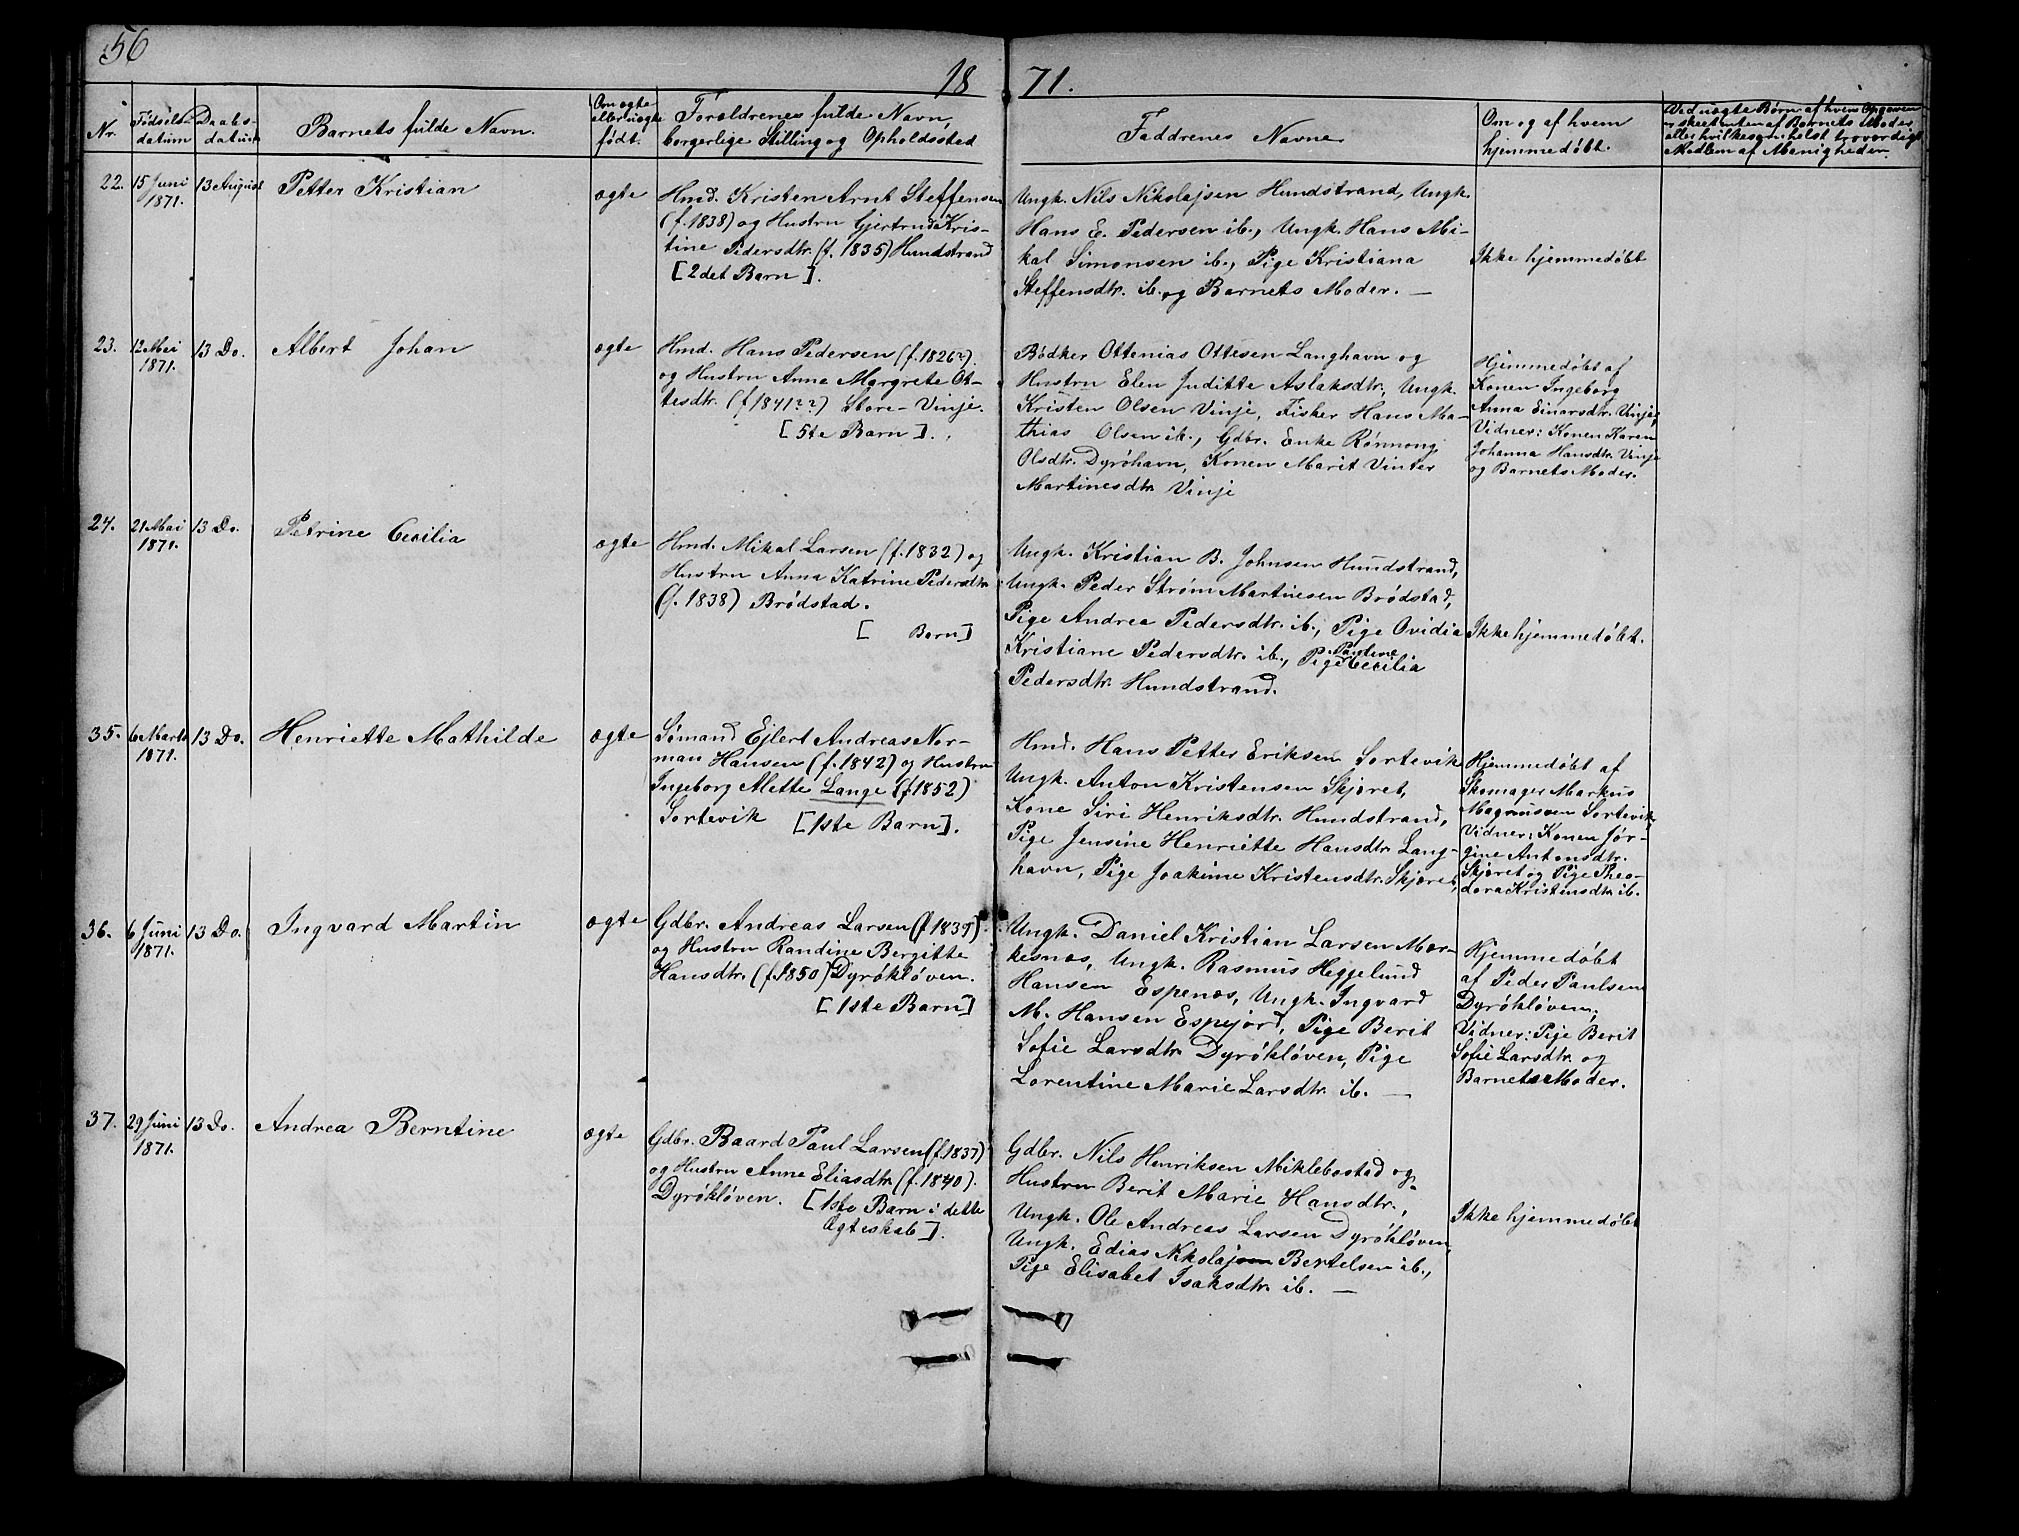 56
18 71.
Nr.
Fødsels-
datum
Daabs-
datum
Barnets fulde Navn.
Om ægte
eller uægte
født.
Forældrenes fulde Navn,
borgerlige Stilling og Opholdssted
Faddrenes Navne
Om og af hvem
hjemmedøbt.
Ved uægte Børn: af hvem Opgaven
er skeet enten af Barnets Moder
eller hvilketsomhelst troværdigt
Medlem af Menigheden.
22.
15 Juni
1871.
13 August
Petter Kristian
ægte
Hmd. Kristen Arnt Steffensen
(f. 1838) og Hustru Gjertrud Kris-
tine Pedersdtr. (f. 1835) Hundstrand
[2det Barn].
Ungk. Nils Nikolajsen Hundstrand, Ungk.
Hans E. Pedersen ib., Ungk. Hans Mi-
kal Simonsen ib., Pige Kristiana
Steffensdtr. ib. og Barnets Moder. —
Ikke hjemmedøbt
23.
12 Mai
1871.
13 Do.
Albert Johan
ægte
Hmd. Hans Pedersen (f. 1826?)
og Hustru Anne Margrete Ot-
tesdtr. (f 1841??) Store-Vinje.
[5te Barn].
Bødker Ottenias Ottesen Langhavn og
Hustru Elen Juditte Aslaksdtr, Ungk.
Kristen Olsen Vinje, Fisker Hans Ma-
thias Olsen ib., Gdbr. Enke Rønnong
Olsdtr. Dyröhavn, Konen Marit Vinter
Martinesdtr. Vinje
Hjemmedøbt af
Konen Ingeborg
Anna Einarsdtr. Vinje,
Vidner: Konen Karen
Johanna Hansdtr. Vinje
og Barnets Moder.
24.
21 Mai
1871.
13 Do.
Petrine Cecilia
ægte
Hmd. Mikal Larsen (f. 1832) og
Hustru Anna Katrine Pedersdtr.
(f. 1838) Brødstad.
[ Barn]
Ungk. Kristian B. Johnsen Hundstrand,
Ungk. Peder Strøm Martinesen Brødstad,
Pige Andrea Pedersdtr. ib., Pige Ovidia
Kristiane Pedersdtr. ib., Pige Pauline Cecilia
Pedersdtr. Hundstrand.
Ikke hjemmedøbt.
35.
6 Marts
1871.
13 Do.
Henriette Mathilde
ægte
Sømand Ejlert Andreas Nor-
man Hansen (f. 1842) og Hustru
Ingeborg Mette Lange (f 1852)
Sortevik [1ste Barn].
Hmd. Hans Petter Eriksen Sortevik
Ungk. Anton Kristensen Skjæret,
Kone Siri Henriksdtr. Hundstrand,
Pige Jensine Henriette Hansdtr. Lang-
havn, Pige Joakime Kristensdtr. Skjæret,
Hjemmedøbt af
Skomager Markus
Magnussen Sortevik
Vidner: Konen Jør-
gine Antonsdtr.
Skjæret og Pige Theo-
dora Kristensdtr ib.
36.
6 Juni
1871.
13 Do.
Ingvard Martin
ægte
Gdbr. Andreas Larsen (f 1839)
og Hustru Randine Bergitte
Hansdtr. (f. 1850) Dyrøkløven.
[1ste Barn]
Ungk. Daniel Kristian Larsen Mør-
kesnæs, Ungk. Rasmus Heggelund
Hansen Espenæs, Ungk. Ingvard
M. Hansen Espejord, Pige Berit
Sofie Larsdtr. Dyrøkløven, Pige
Lorentine Marie Larsdtr. ib. —
Hjemmedøbt
af Peder Paulsen
Dyrøkløven;
Vidner: Pige Berit
Sofie Larsdtr. og
Barnets Moder.
37.
29 Juni
1871.
13 Do.
Andrea Berntine
ægte
Gdbr. Baard Paul Larsen (f. 1837)
og Hustru Anne Eliasdtr. (f. 1840).
Dyrøkløven. [1ste Barn i dette
Ægteskab].
Gdbr. Nils Henriksen Miklebostad og
Hustru Berit Marie Hansdtr.,
Ungk. Ole Andreas Larsen Dyrøkløven,
Ungk. Edias Nikolajsen Bertelsen ib.,
Pige Elisabet Isaksdtr. ib. —
Ikke hjemmedøbt